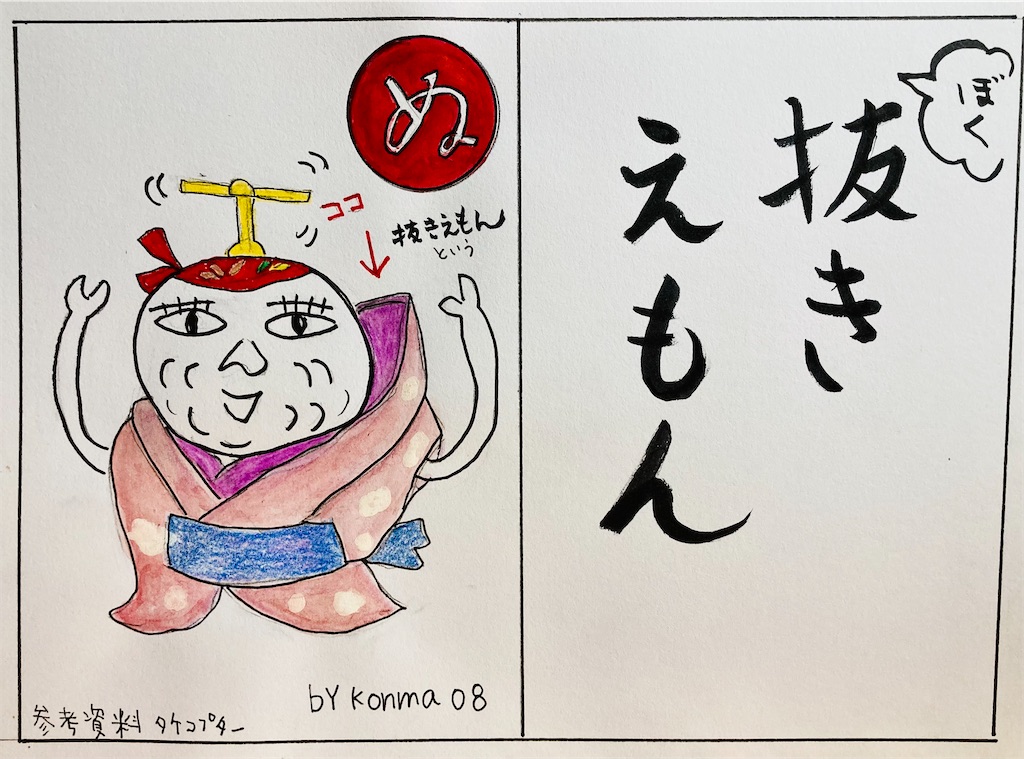 ぬ
ココ
抜きえもん
という
by konma 08
参考資料 タケコプター
ぼく
抜き
えもん